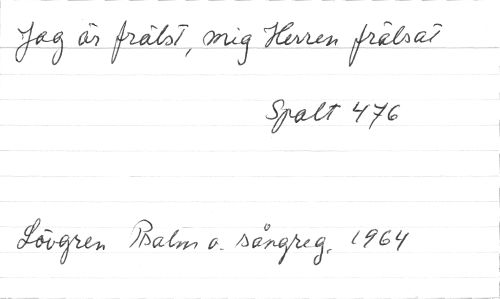 Jag är frälst, mig Herren frälsat
Spalt 476
Lövgren Psalm o. sångreg. 1964